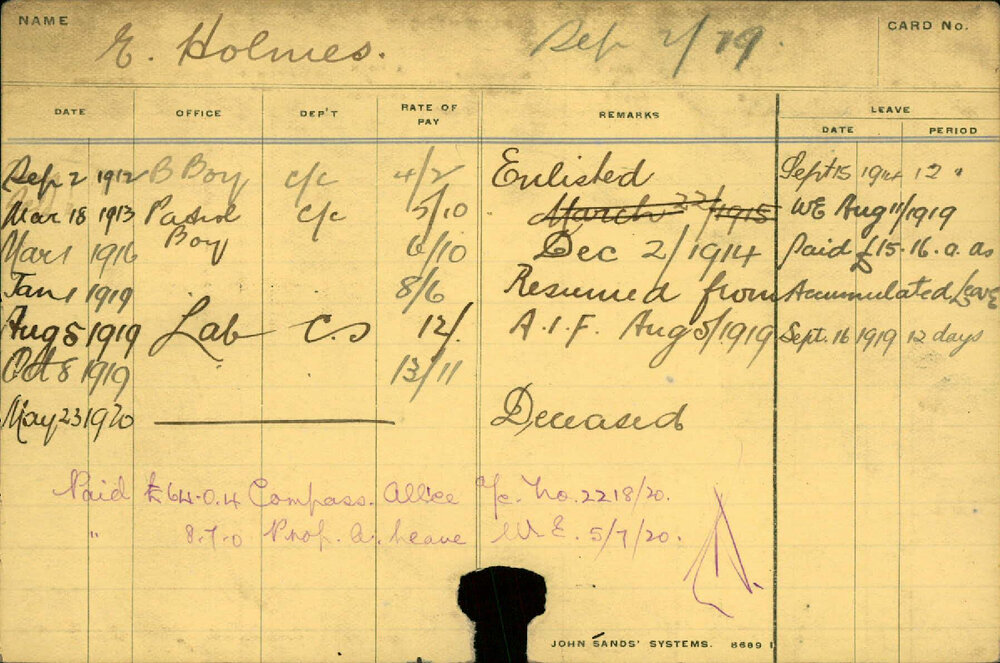 NAME E. Holmes. Sep 2/79. CARD No.
DATE OFFICE DEP'T RATE OF PAY REMARKS LEAVE
DATE PERIOD
Sep 2 1912 B Boy c/c 4/2 Enlisted Sept 15 1914 12 "
Mar 18 1913 Patrol c/c 5/10 March 22/1915 WE Aug 11/1919
Mar 1 1916 Boy 6/10 Dec 2/1914 Paid £15.16.0. as
Jan 1 1919 8/6 Resumed from Accumulated Leave
Aug 5 1919 Lab C.S 12/. A.I.F. Aug 5/1919 Sept. 16 1919 12 days
Oct 8 1919 13/11
May 23 1920 Deceased
Paid £64.0.4 Compass. Allce a/c. No. 2218/20.
" 8.7.0 Prop. A. Leave W.E. 5/7/20.
JOHN SANDS' SYSTEMS. 8689